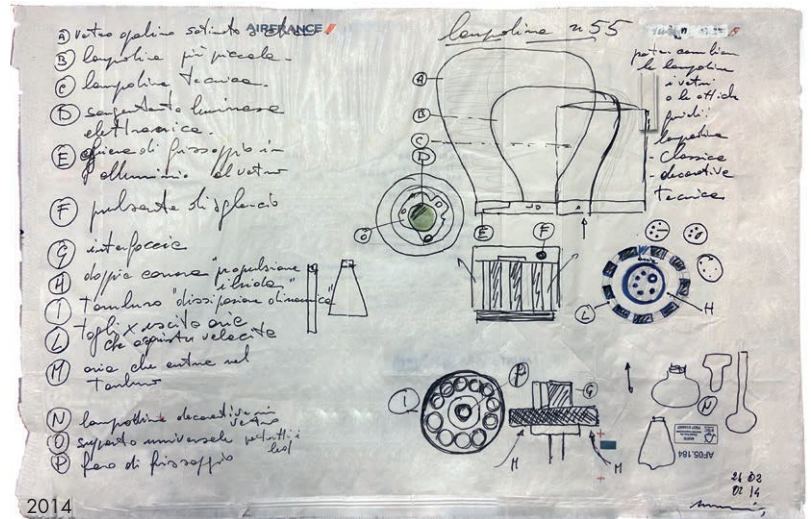 AIRFRANCE
lampolina n 55
A vetro opalino satinato
B lampolina più piccola.
C lampolina tecnica.
D sorgente luminosa
elettronica.
E ghiera di fissaggio in
alluminio al vetro
F pulsante di sgancio
G interfaccia
H doppia camera "propulsione
ibrida"
I Tamburo "dissipazione dinamica"
L Tagli x uscita aria
che acquista velocità
M aria che entra nel
Tamburo
N lampolline decorative in
vetro
O supporto universale per tutti i
led
P foro di fissaggio
poter cambiare
le lampoline
i vetri
o le ottiche
quindi:
lampolina
- Classica
- decorative
Tecnica
A
B
C
D
O
E
F
L
H
I
P
G
N
M
M
AF05.184
2014